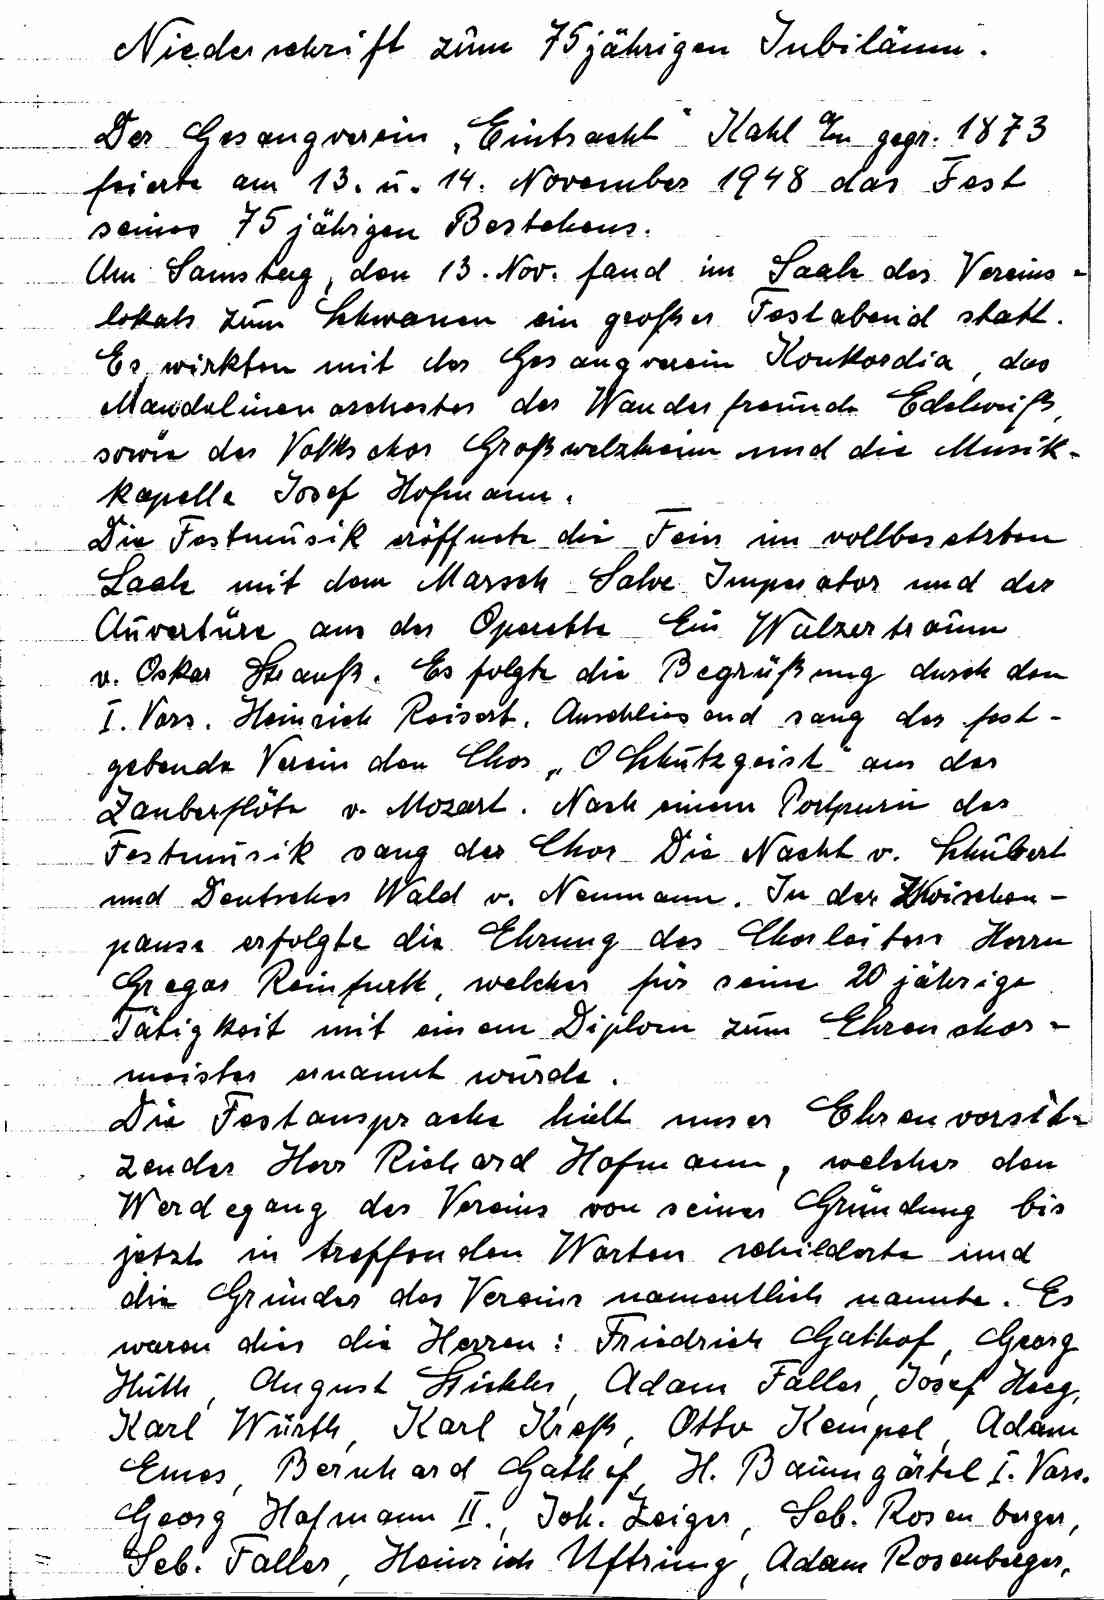 Niederschrift zum 75jährigen Jubiläum.
Der Gesangverein „Eintracht" Kahl a/M gegr. 1873
feierte am 13. u. 14. November 1948 das Fest
seines 75jährigen Bestehens.
Am Samstag, den 13. Nov. fand im Saale des Vereins-
lokals zum Schwanen ein großer Festabend statt.
Es wirkten mit der Gesangverein Konkordia, das
Mandolinenorchester der Wanderfreunde Edelweiß,
sowie der Volkschor Großwelzheim und die Musik-
kapelle Josef Hofmann.
Die Festmusik eröffnete die Feier im vollbesetzten
Saale mit dem Marsch Salve Imperator und der
Ouvertüre aus der Operette Ein Walzertraum
v. Oskar Strauß. Es folgte die Begrüßung durch den
I. Vors. Heinrich Reisert. Anschliesend sang der fest-
gebende Verein den Chor „O Schutzgeist" aus der
Zauberflöte v. Mozart. Nach einem Portpurie der
Festmusik sang der Chor Die Nacht v. Schubert
und Deutscher Wald v. Neumann. In der Zwischen-
pause erfolgte die Ehrung des Chorleiters Herrn
Gregor Reinfurth, welcher für seine 20jährige
Tätigkeit mit einem Diplom zum Ehrenchor-
meister ernannt wurde.
Die Festansprache hielt unser Ehrenvorsit-
zender Herr Richard Hofmann, welcher den
Werdegang des Vereins von seiner Gründung bis
jetzt in treffenden Worten schilderte und
die Gründer des Vereins namentlich nannte. Es
waren dies die Herren: Friedrich Gathof, Georg
Huth, August Stickler, Adam Faller, Josef Heeg,
Karl Würth, Karl Kreß, Otto Kempel, Adam
Emes, Bernhard Gathof, H. Baumgärtel I. Vors.
Georg Hofmann II., Joh. Zeiger, Seb. Rosenberger,
Seb. Faller, Heinrich Uftring, Adam Rosenberger,